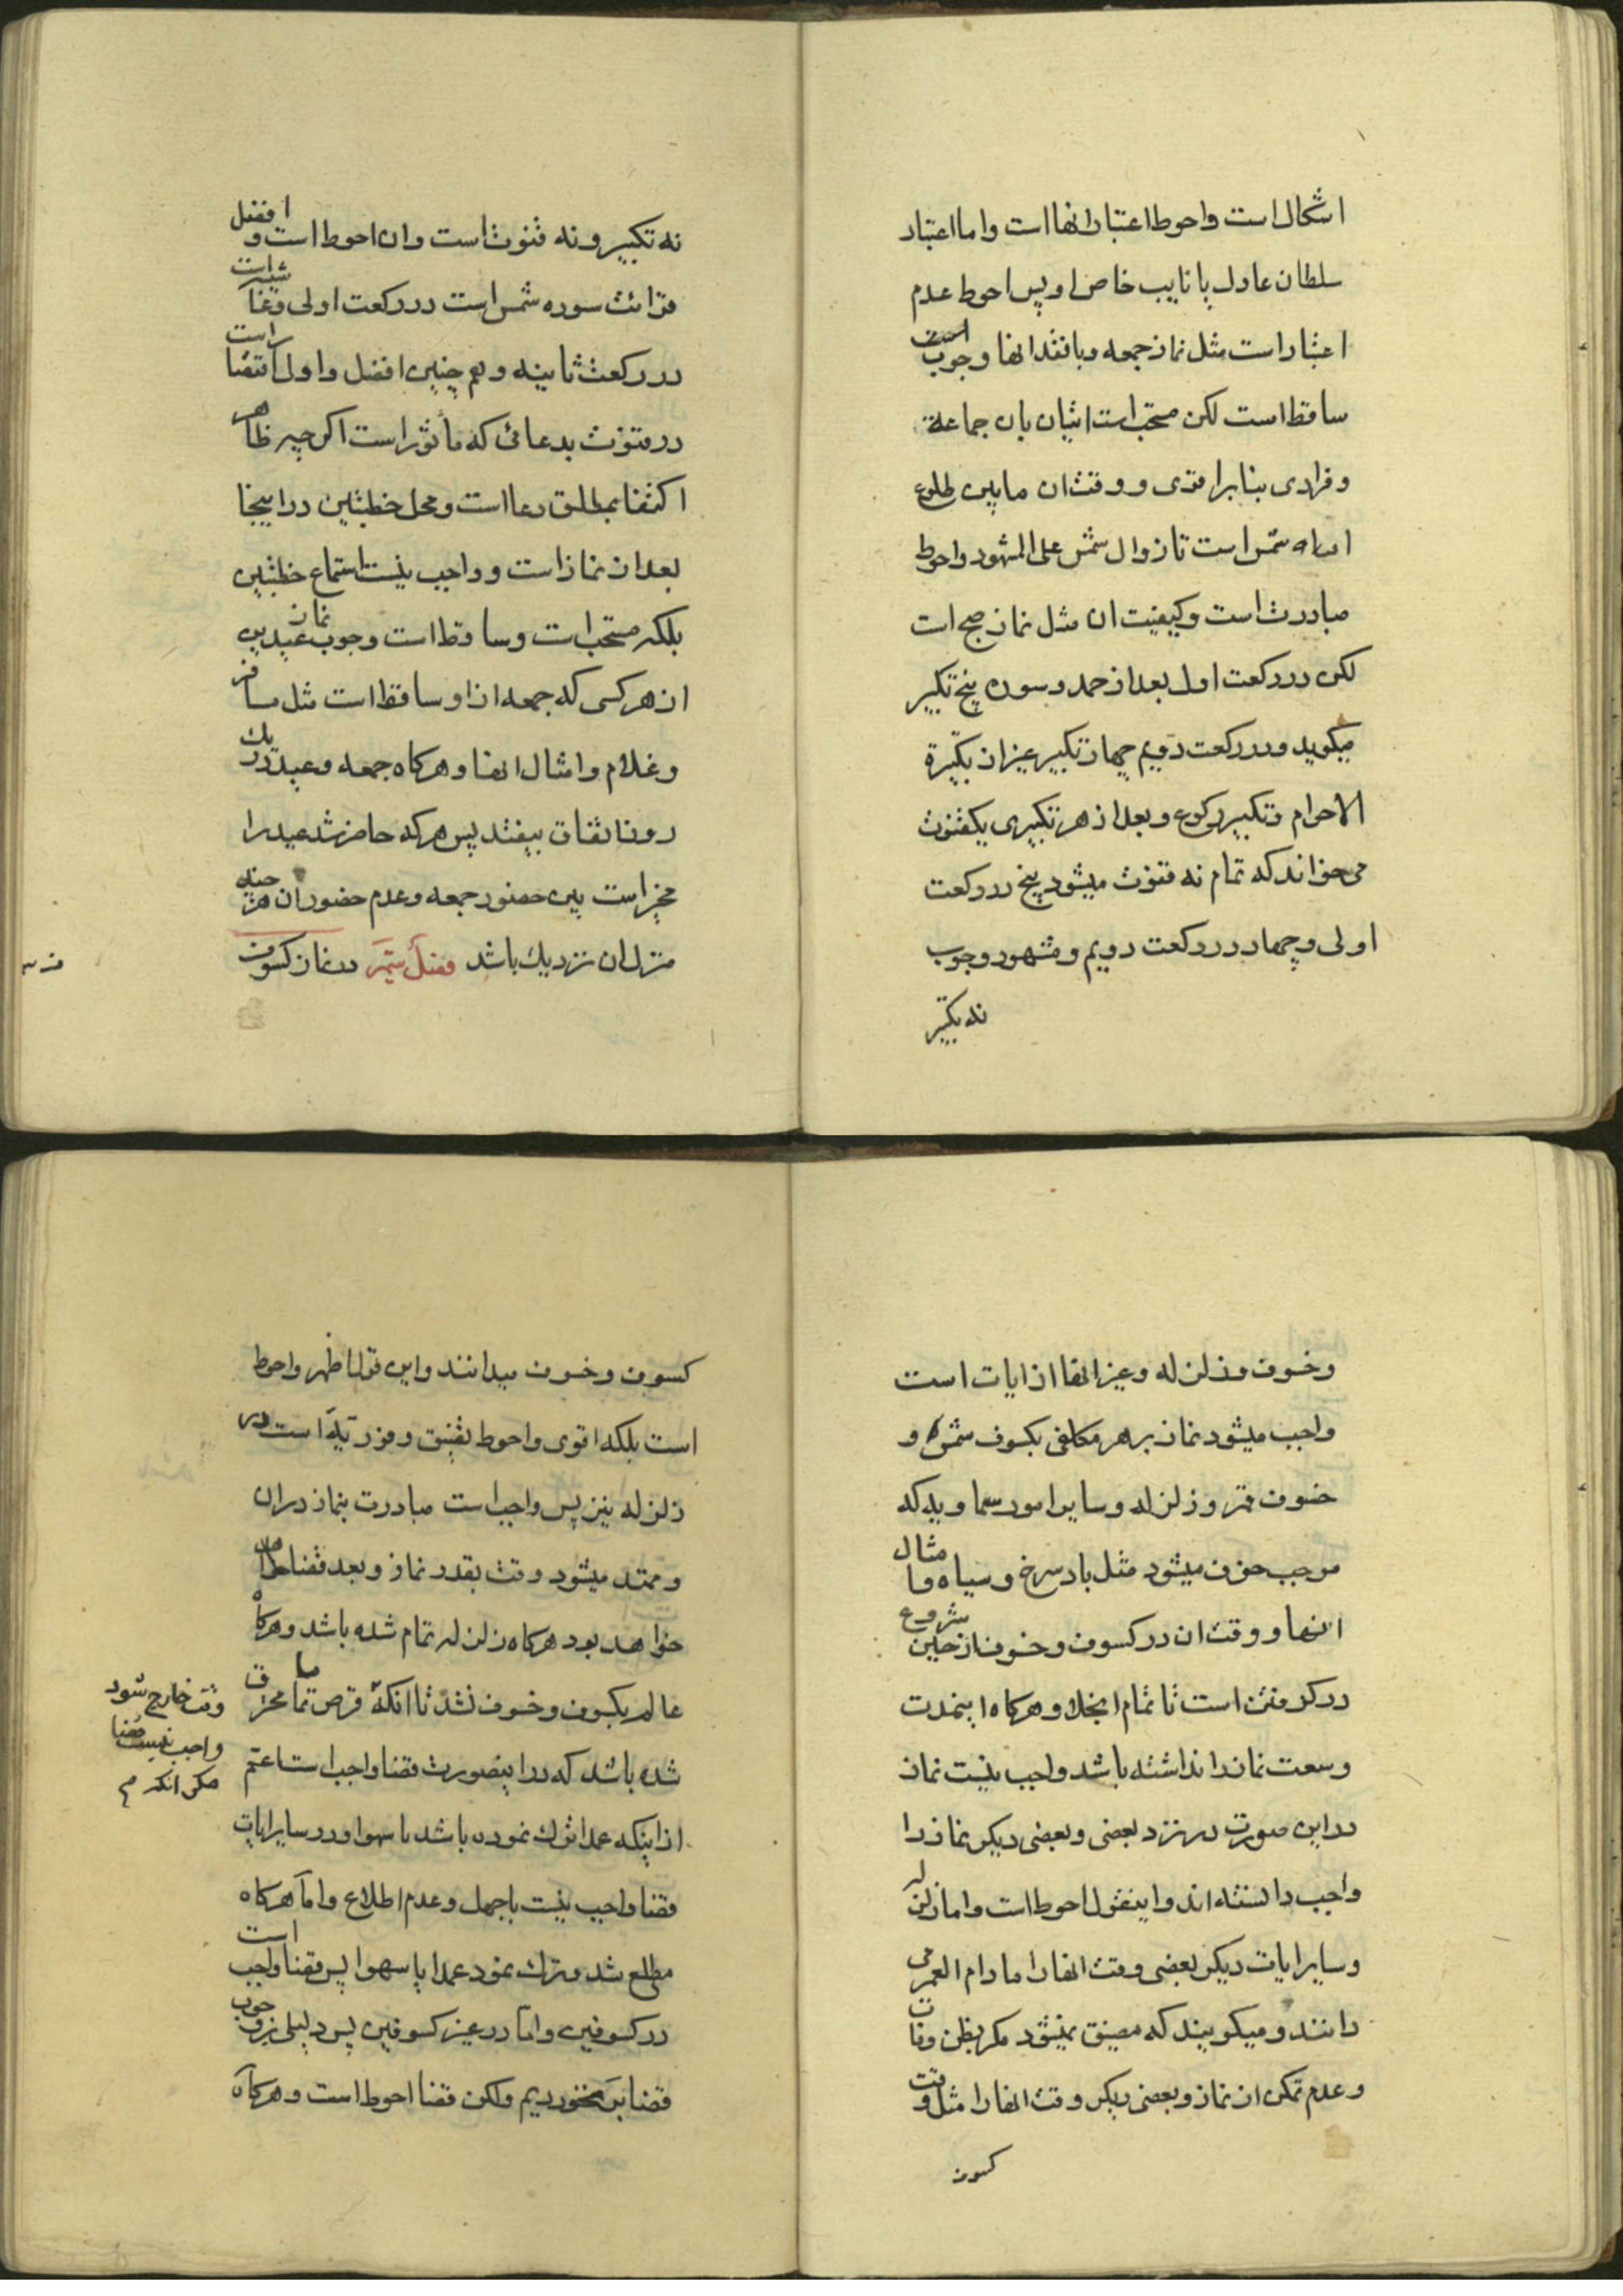 اشکال است واحوط اعتبار انها است واما اعتبار
سلطان عادل یا نایب خاص او پس احوط عدم
اعتبار است مثل نماز جمعه وبا فقد انها وجوب
ساقط است لکن مستحب است اتیان بان جماعة
وفرادی بنابر اقوی و وقت ان مابین طلوع
شمس است تا زوال شمس علی المشهور واحوط
مبادرت است وکیفیت ان مثل نماز صبح است
لکن در رکعت اول بعد از حمد وسوره پنج تکبیر
میکوید ودر رکعت دویم چهار تکبیر غیر از تکبیرة
الاحرام وتکبیر رکوع وبعد از هر تکبیری یکقنوت
می خواند که تمام نه قنوت میشود پنج در رکعت
اولی وچهار در رکعت دویم ومشهور وجوب
نه تکبیر
نه تکبیر ونه قنوت است وان احوط است و افضل
قرائت سوره شمس است در رکعت اولی وغاشیه است
در رکعت ثانیه وهم چنین افضل واولی اقتصار است
در قنوت بدعائی که ماثور است اکر چه ظاهر
اکتفا بمطلق دعا است ومحل خطبتین در اینجا
بعد از نماز است و واجب نیست استماع خطبتین
بلکه مستحب است وساقط است وجوب نماز عیدین
از هر کسی که جمعه از او ساقط است مثل مسافر
وغلام وامثال انها وهرکاه جمعه وعید در یک
روز اتفاق بیفتد پس هر که حاضر شد عید را
مخیر است بین حضور جمعه وعدم حضور ان هر چند
منزل ان نزدیک باشد فصل ششم در نماز کسوف
وخسوف وزلزله وغیر انها از ایات است
واجب میشود نماز بر هر مکلفی بکسوف شمس و
خسوف قمر و زلزله وسایر امور سماویه که
موجب خوف میشود مثل باد سرخ وسیاه وامثال
انها و وقت ان در کسوف وخسوف از حین شروع
در کرفتن است تا تمام انجلا وهرکاه اینمدت
وسعت نماز را نداشته باشد واجب نیست نماز
در این صورت در نزد بعضی وبعضی دیکر نماز را
واجب دانسته اند واینقول احوط است واما زلزله
وسایر ایات دیکر بعضی وقت انها را مادام العمر می
دانند ومیکویند که مضیق نمیشود مکر بظن وفات
وعدم تمکن از نماز وبعضی دیکر وقت انها را مثل وقت
کسوف
کسوف وخسوف میدانند واین قول اظهر واحوط
است بلکه اقوی واحوط تضیق وفوریة است در
زلزله نیز پس واجب است مبادرت بنماز در ان
وممتد میشود وقت بقدر نماز وبعد قضا
خواهد بود هرکاه زلزله تمام شده باشد وهرکاه
عالم بکسوف وخسوف نشد تا انکه قرص تماما محترق
وقت خارج شود
واجب نیست قضا
مکر انکه م
شده باشد که در اینصورت قضا واجب است اعم
از اینکه عمدا ترک نموده باشد یا سهوا ودر سایر ایات
قضا واجب نیست با جهل وعدم اطلاع واما هرکاه
مطلع شد وترک نمود عمدا یا سهوا پس قضا واجب است
در کسوفین واما در غیر کسوفین پس دلیلی بر وجوب
قضا بر نخوردیم ولکن قضا احوط است وهرکاه